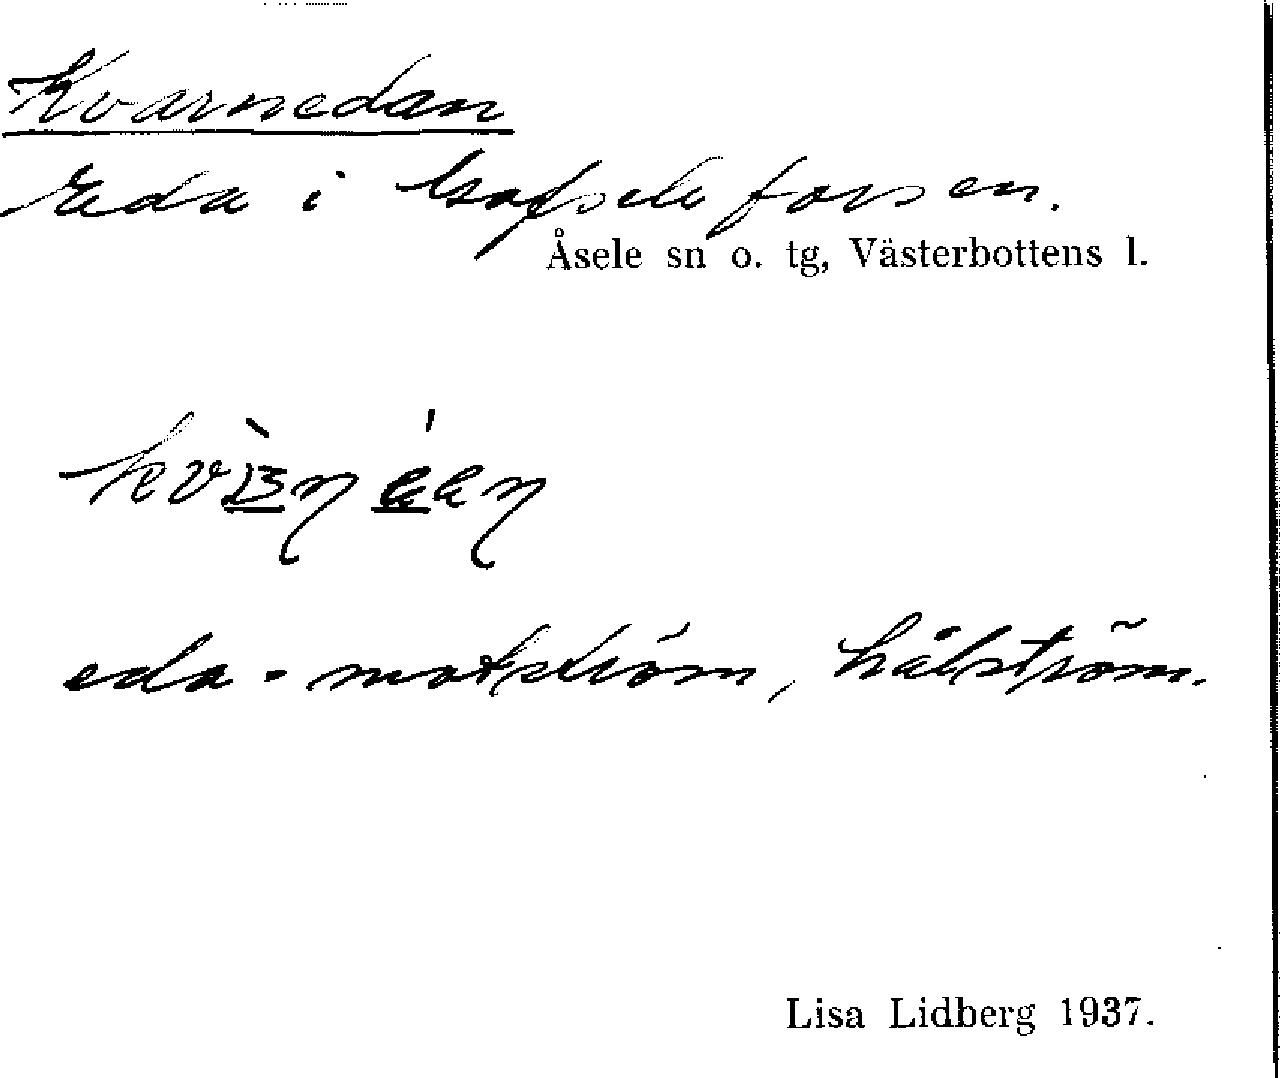 Kvarnedan
Eda i Gafseleforsen.
Åsele sn o. tg, Västerbottens l.
eda = motström, bakström.
Lisa Lidberg 1937.